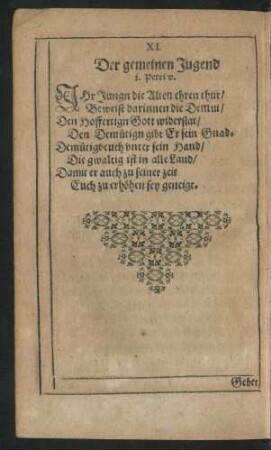 XI.
Der gemeinen Jugend
1. Petri v.
IHr Jungn die Alten ehren thut/
Beweist darinnen die Demut/
Den Hoffertign Gott widerstat/
Den Demütign gibt Er sein Gnad.
Demütigt euch vnter sein Hand/
Die gwaltig ist in alle Land/
Damit er auch zu seiner zeit
Euch zu erhöhen sey geneigt.
Gebet